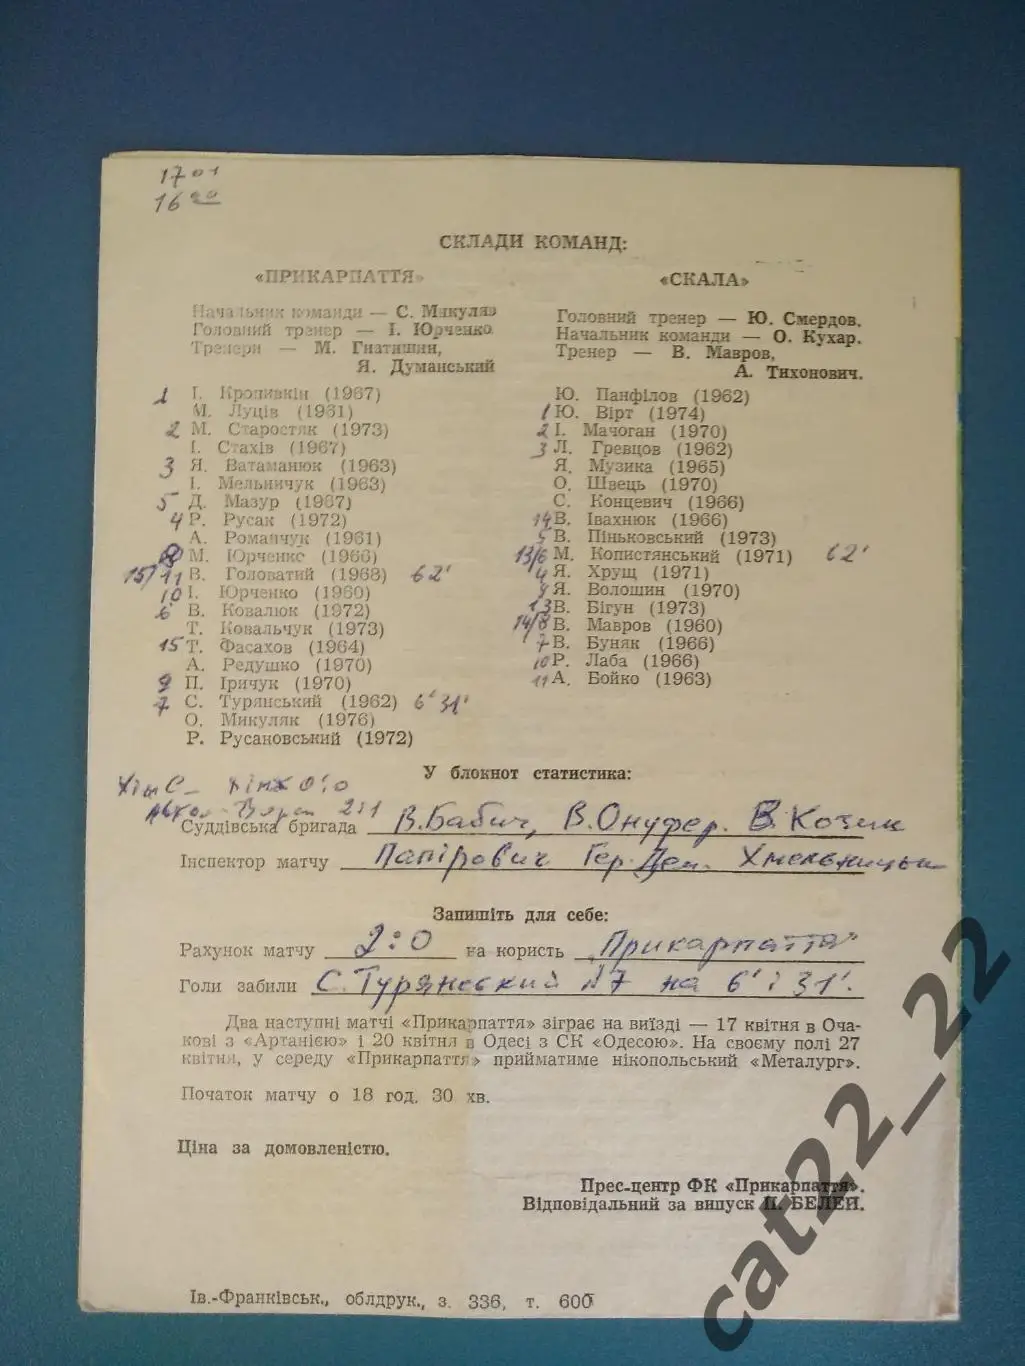 17 01
16 00
СКЛАДИ КОМАНД:
«ПРИКАРПАТТЯ»
Начальник команди — С. Микуляк
Головний тренер — І. Юрченко
Тренери — М. Гнатишин,
Я. Думанський
1 І. Кропивкін (1967)
М. Луців (1961)
2 М. Старостяк (1973)
І. Стахів (1967)
3 Я. Ватаманюк (1963)
І. Мельничук (1963)
5 Д. Мазур (1967)
4 Р. Русак (1972)
А. Романчук (1961)
8 М. Юрченко (1966)
15/11 В. Головатий (1968) 62'
10 І. Юрченко (1960)
6 В. Ковалюк (1972)
Т. Ковальчук (1973)
15 Т. Фасахов (1964)
А. Редушко (1970)
9 П. Іричук (1970)
7 С. Турянський (1962) 6' 31'
О. Микуляк (1976)
Р. Русановський (1972)
«СКАЛА»
Головний тренер — Ю. Смердов.
Начальник команди — О. Кухар.
Тренер — В. Мавров,
А. Тихонович.
Ю. Панфілов (1962)
1 Ю. Вірт (1974)
2 І. Мачоган (1970)
3 Л. Гревцов (1962)
Я. Музика (1965)
О. Швець (1970)
С. Концевич (1966)
14 В. Івахнюк (1966)
5 В. Піньковський (1973)
13/6 М. Копистянський (1971) 62'
4 Я. Хрущ (1971)
9 Я. Волошин (1970)
13 В. Бігун (1973)
14/8 В. Мавров (1960)
7 В. Буняк (1966)
10 Р. Лаба (1966)
11 А. Бойко (1963)
У блокнот статистика:
0:0
2:1
Суддівська бригада В. Бабич, В. Онуфер. В. Козик
Інспектор матчу Папірович Гер. Дем. Хмельницьк
Запишіть для себе:
Рахунок матчу 2:0 на користь „Прикарпаття"
Голи забили С. Турянский N7 на 6' і 31'.
Два наступні матчі «Прикарпаття» зіграє на виїзді — 17 квітня в Оча-
кові з «Артанією» і 20 квітня в Одесі з СК «Одесою». На своєму полі 27
квітня, у середу «Прикарпаття» прийматиме нікопольський «Металург».
Початок матчу о 18 год. 30 хв.
Ціна за домовленістю.
Прес-центр ФК «Прикарпаття».
Відповідальний за випуск П. БЕЛЕЙ.
Ів.-Франківськ., облдрук., з. 336, т. 600
cat22_22